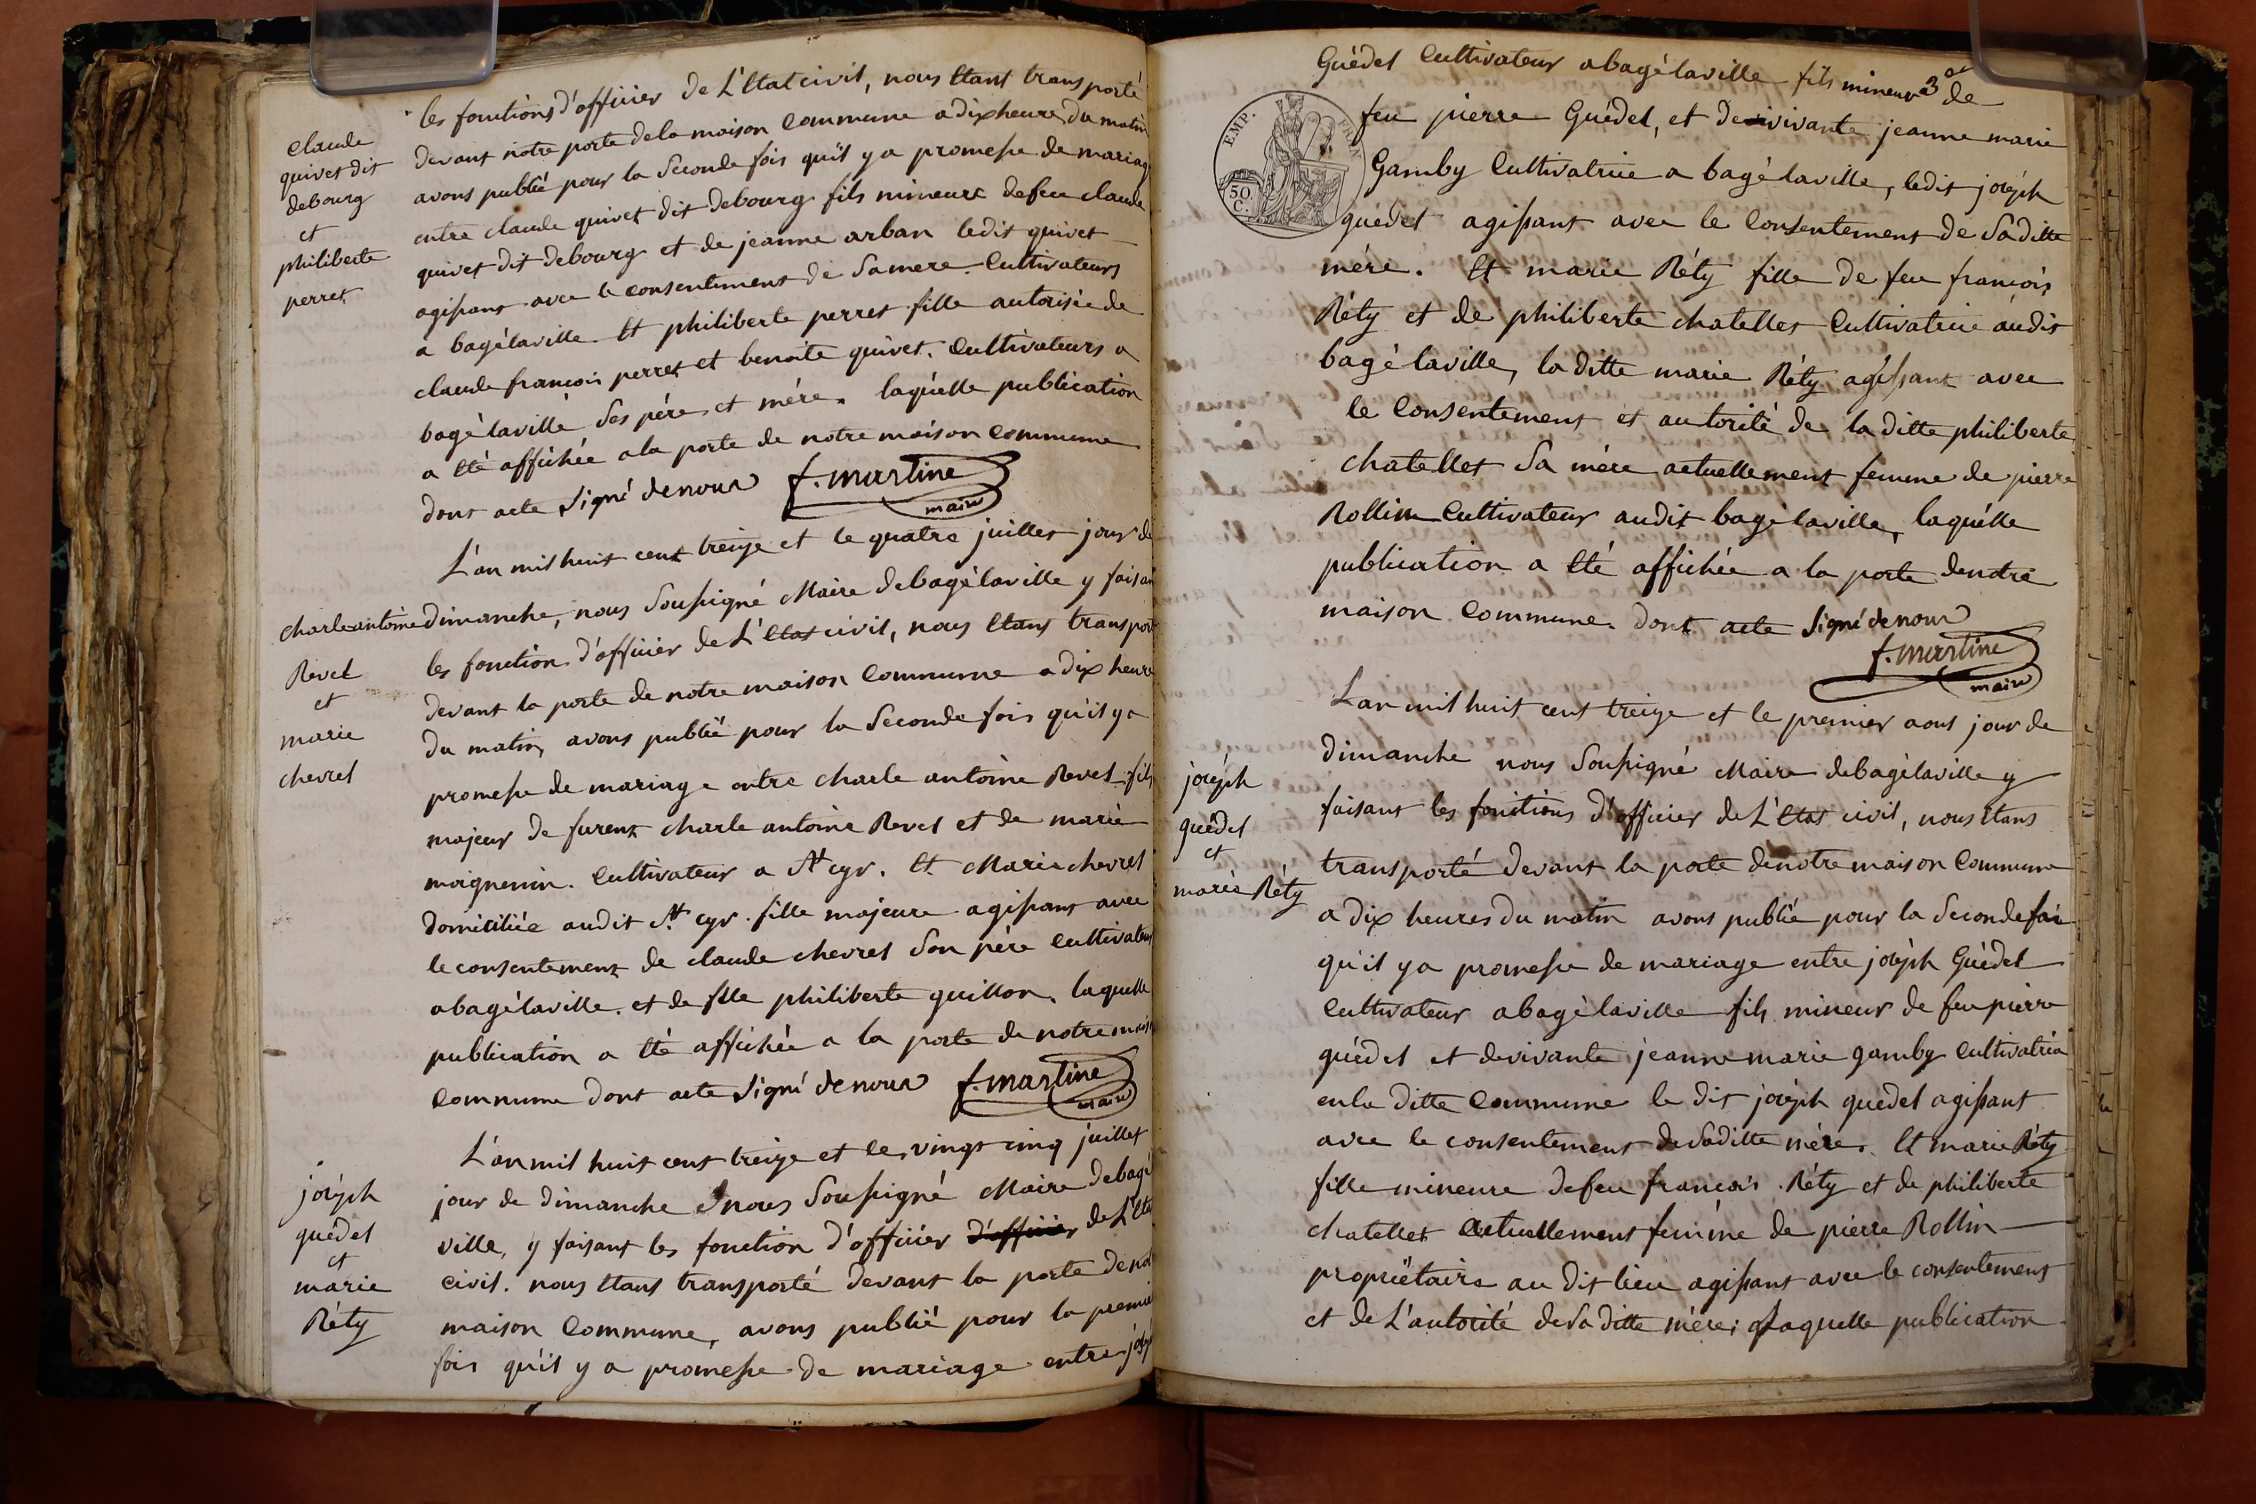 les fonctions d'officier de L'Etat civil, nous Etant transporté
claude
quivet dit
debourg
et
philiberte
perret
devant notre porte de la maison Commune a dix heure du matin
avons publié pour la Seconde fois qu'il y a promesse de mariage
entre claude quivet dit debourg fils mineure de feu claude
quivet dit debourg et de jeanne arban ledit quivet
agissant avec le consentement de Sa mere. Cultivateurs
a bagélaville Et philiberte perret fille autorisée de
claude francois perret et benoite quivet. Cultivateurs a
bagélaville Ses père et mère. laquelle publication
a Eté affichée a la porte de notre maison Commune
dont acte Signé de nous f. martine
maire
L'an mil huit cent treize et le quatre juillet jour de
charle antoine
Revel
et
marie
chevret
dimanche, nous Soussigné Maire de bagélaville y faisant
les fonction d'officier de L'Etat civil, nous Etant transporté
devant la porte de notre maison Commune a dix heure
du matin, avons publié pour la Seconde fois qu'il y a
promesse de mariage entre charle antoine Revel fils
majeur de furent charle antoine Revel et de marie
moignemin. Cultivateur a St cyr. Et Marie chevret
domiciliée audit St cyr. fille majeure agissant avec
le consentement de claude chevret Son père Cultivateur
a bagélaville. et de philiberte guillon. laquelle
publication a Eté affichée a la porte de notre maison
Commune dont acte Signé de nous f. martine
maire
L'an mil huit cent treize et le vingt cinq juillet
joséph
guédet
et
marie
Réty
jour de dimanche nous Soussigné Maire de bagé
ville, y faisant les fonction d'officier d'officier de L'Etat
civil. nous Etant transporté devant la porte de not
maison Commune, avons publié pour la premie
fois qu'il y a promesse de mariage entre joséph
Guédet Cultivateur a bagélaville fils mineur de
3
EMP. FRAN
50 C.
feu pierre Guédet, et de vivante jeanne marie
Gamby Cultivatrice a bagélaville, ledit joséph
guédet agissant avec le Consentement de Saditte
mère. Et marie Réty fille de feu francois
Réty et de philiberte chatellet Cultivatrice audit
bagélaville, la ditte marie Réty agissant avec
le Consentement et autorité de la ditte philiberte
chatellet Sa mère actuellement femme de pierre
Rollin Cultivateur audit bagélaville, laquelle
publication a Eté affichée a la porte de notre
maison Commune. dont acte Signé de nous
f. martine
maire
L'an mil huit cent treize et le premier aout jour de
joséph
guédet
et
marie Réty
dimanche nous Soussigné Maire de bagélaville y
faisant les fonctions d'officier de L'Etat civil, nous Etans
transporté devant la porte de notre maison Commune
a dix heures du matin avons publié pour la Seconde fois
qu'il y a promesse de mariage entre joséph Guédet
Cultivateur a bagélaville fils mineur de feu pierre
guédet et de vivante jeanne marie gamby Cultivatrice
en la ditte Commune le dit joséph guédet agissant
avec le consentement de Saditte mère. Et marie Réty
fille mineure de feu francois Réty et de philiberte
chatellet actuellement femme de pierre Rollin
propriétaire au dit lieu agissant avec le consentement
et de L'autorité de Sa ditte mère. Laquelle publication